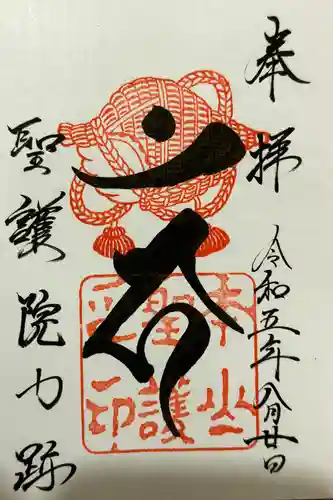 奉拝
令和五年八月廿日
本山
聖護
印
聖護院門跡